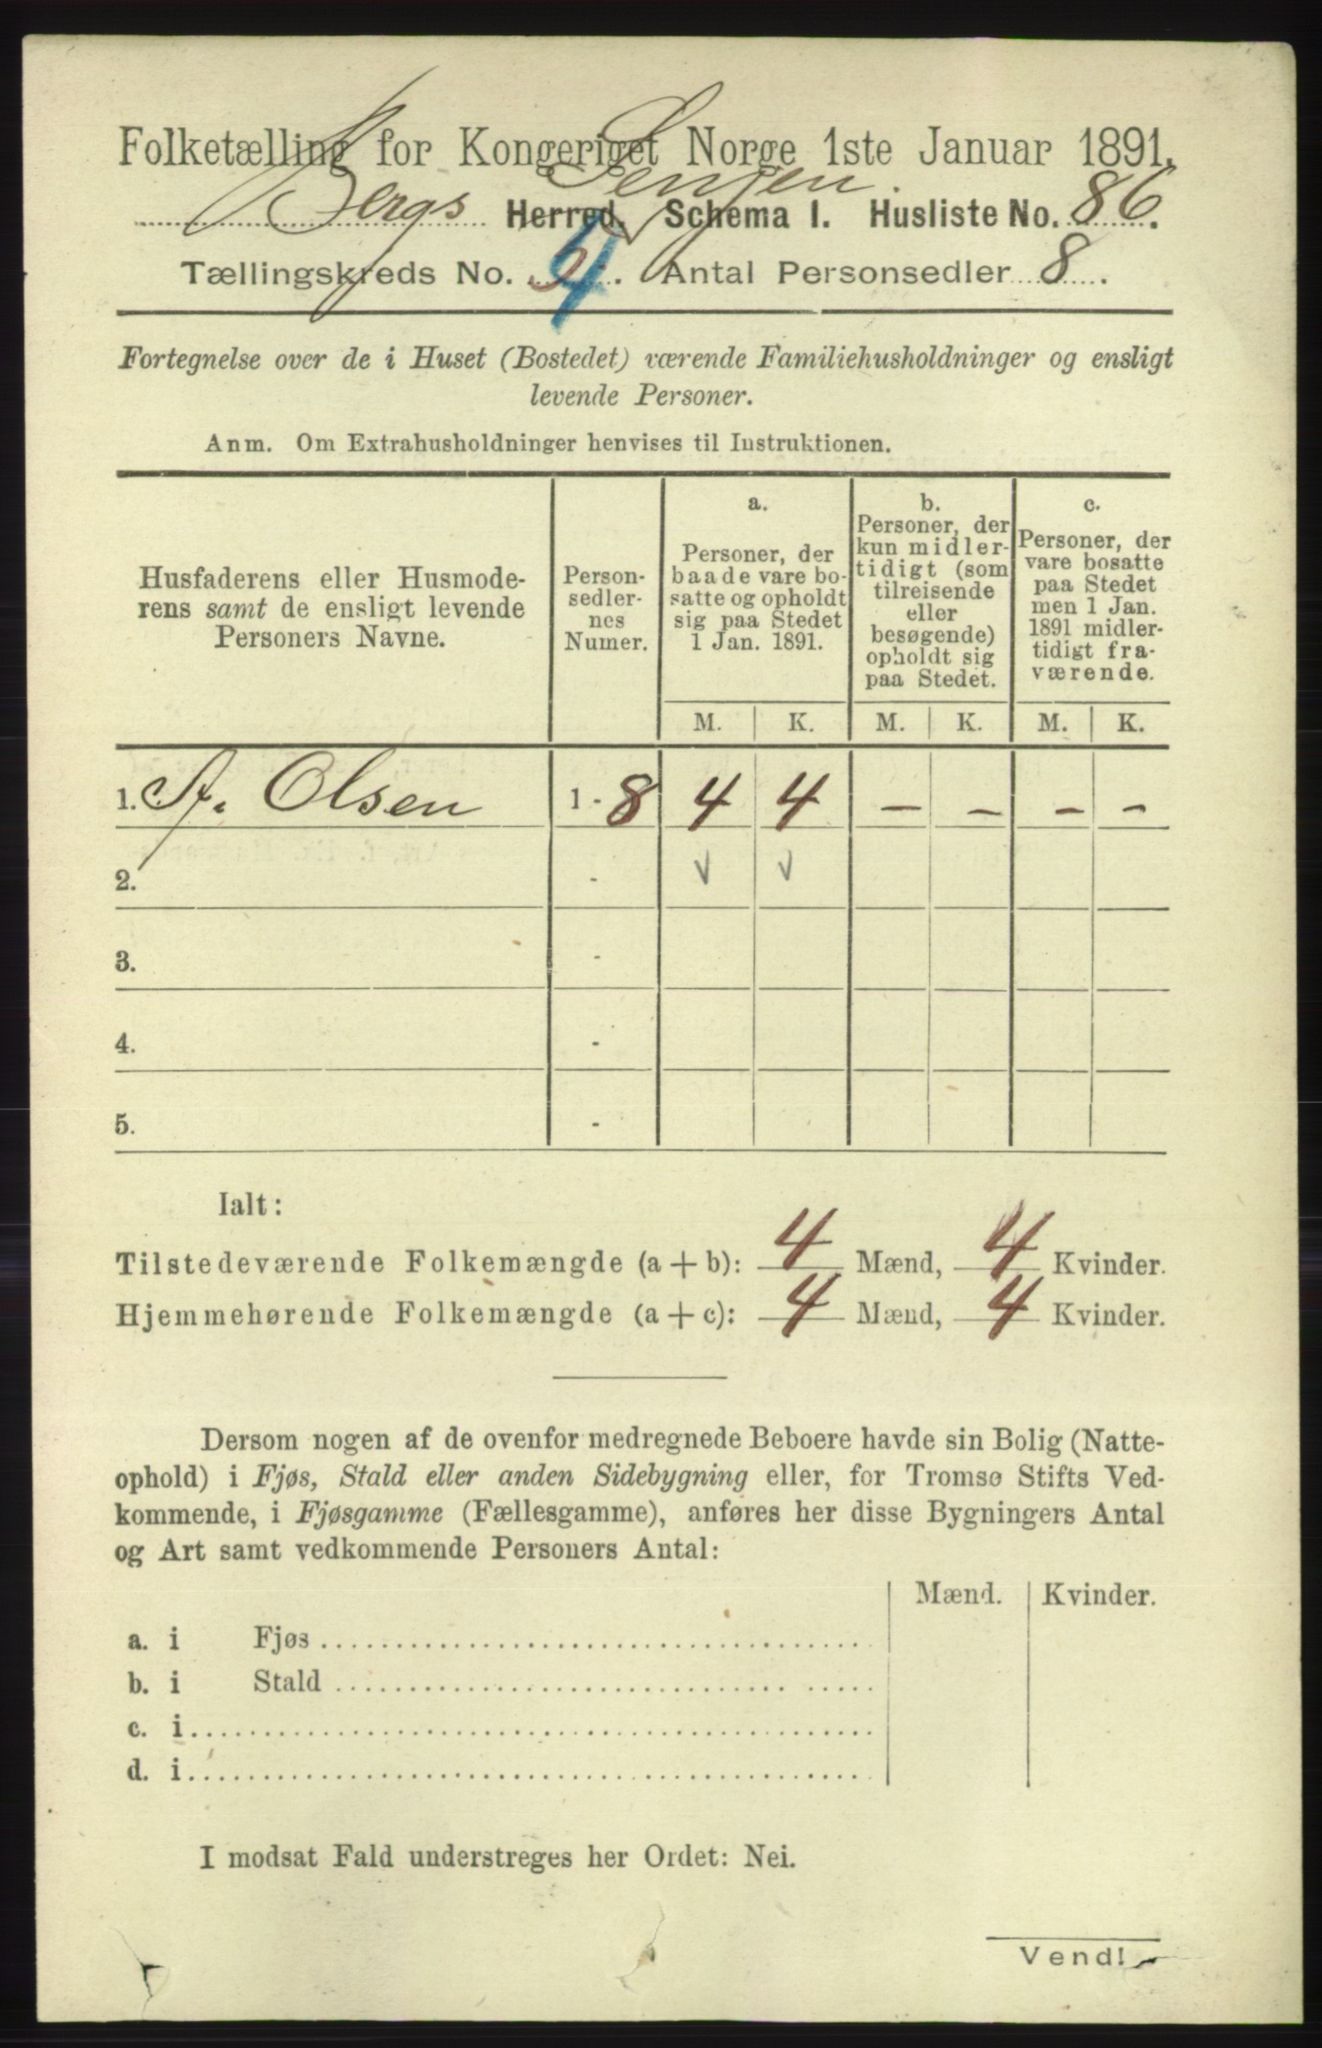 Folketælling for Kongeriget Norge 1ste Januar 1891.
Senjen.
Bergs Herred. Schema I. Husliste No. 86.
Tællingskreds No. 4. Antal Personsedler 8.
Fortegnelse over de i Huset (Bostedet) værende Familiehusholdninger og ensligt
levende Personer.
Anm. Om Extrahusholdninger henvises til Instruktionen.
Husfaderens eller Husmode-
rens samt de ensligt levende
Personers Navne.
Person-
sedler-
nes
Numer.
a.
Personer, der
baade vare bo-
satte og opholdt
sig paa Stedet
1 Jan. 1891.
b.
Personer, der
kun midler-
tidigt (som
tilreisende
eller
besøgende)
opholdt sig
paa Stedet.
c.
Personer, der
vare bosatte
paa Stedet
men 1 Jan.
1891 midler-
tidigt fra-
værende.
M. K. M. K. M. K.
1. A. Olsen 1 - 8 4 4 – – – –
2. - √ √
3. -
4. -
5. -
Ialt:
Tilstedeværende Folkemængde (a + b): 4 Mænd, 4 Kvinder.
Hjemmehørende Folkemængde (a + c): 4 Mænd, 4 Kvinder.
Dersom nogen af de ovenfor medregnede Beboere havde sin Bolig (Natte-
ophold) i Fjøs, Stald eller anden Sidebygning eller, for Tromsø Stifts Ved-
kommende, i Fjøsgamme (Fællesgamme), anføres her disse Bygningers Antal
og Art samt vedkommende Personers Antal:
Mænd. Kvinder.
a. i Fjøs
b. i Stald
c. i
d. i
I modsat Fald understreges her Ordet: Nei.
Vend!